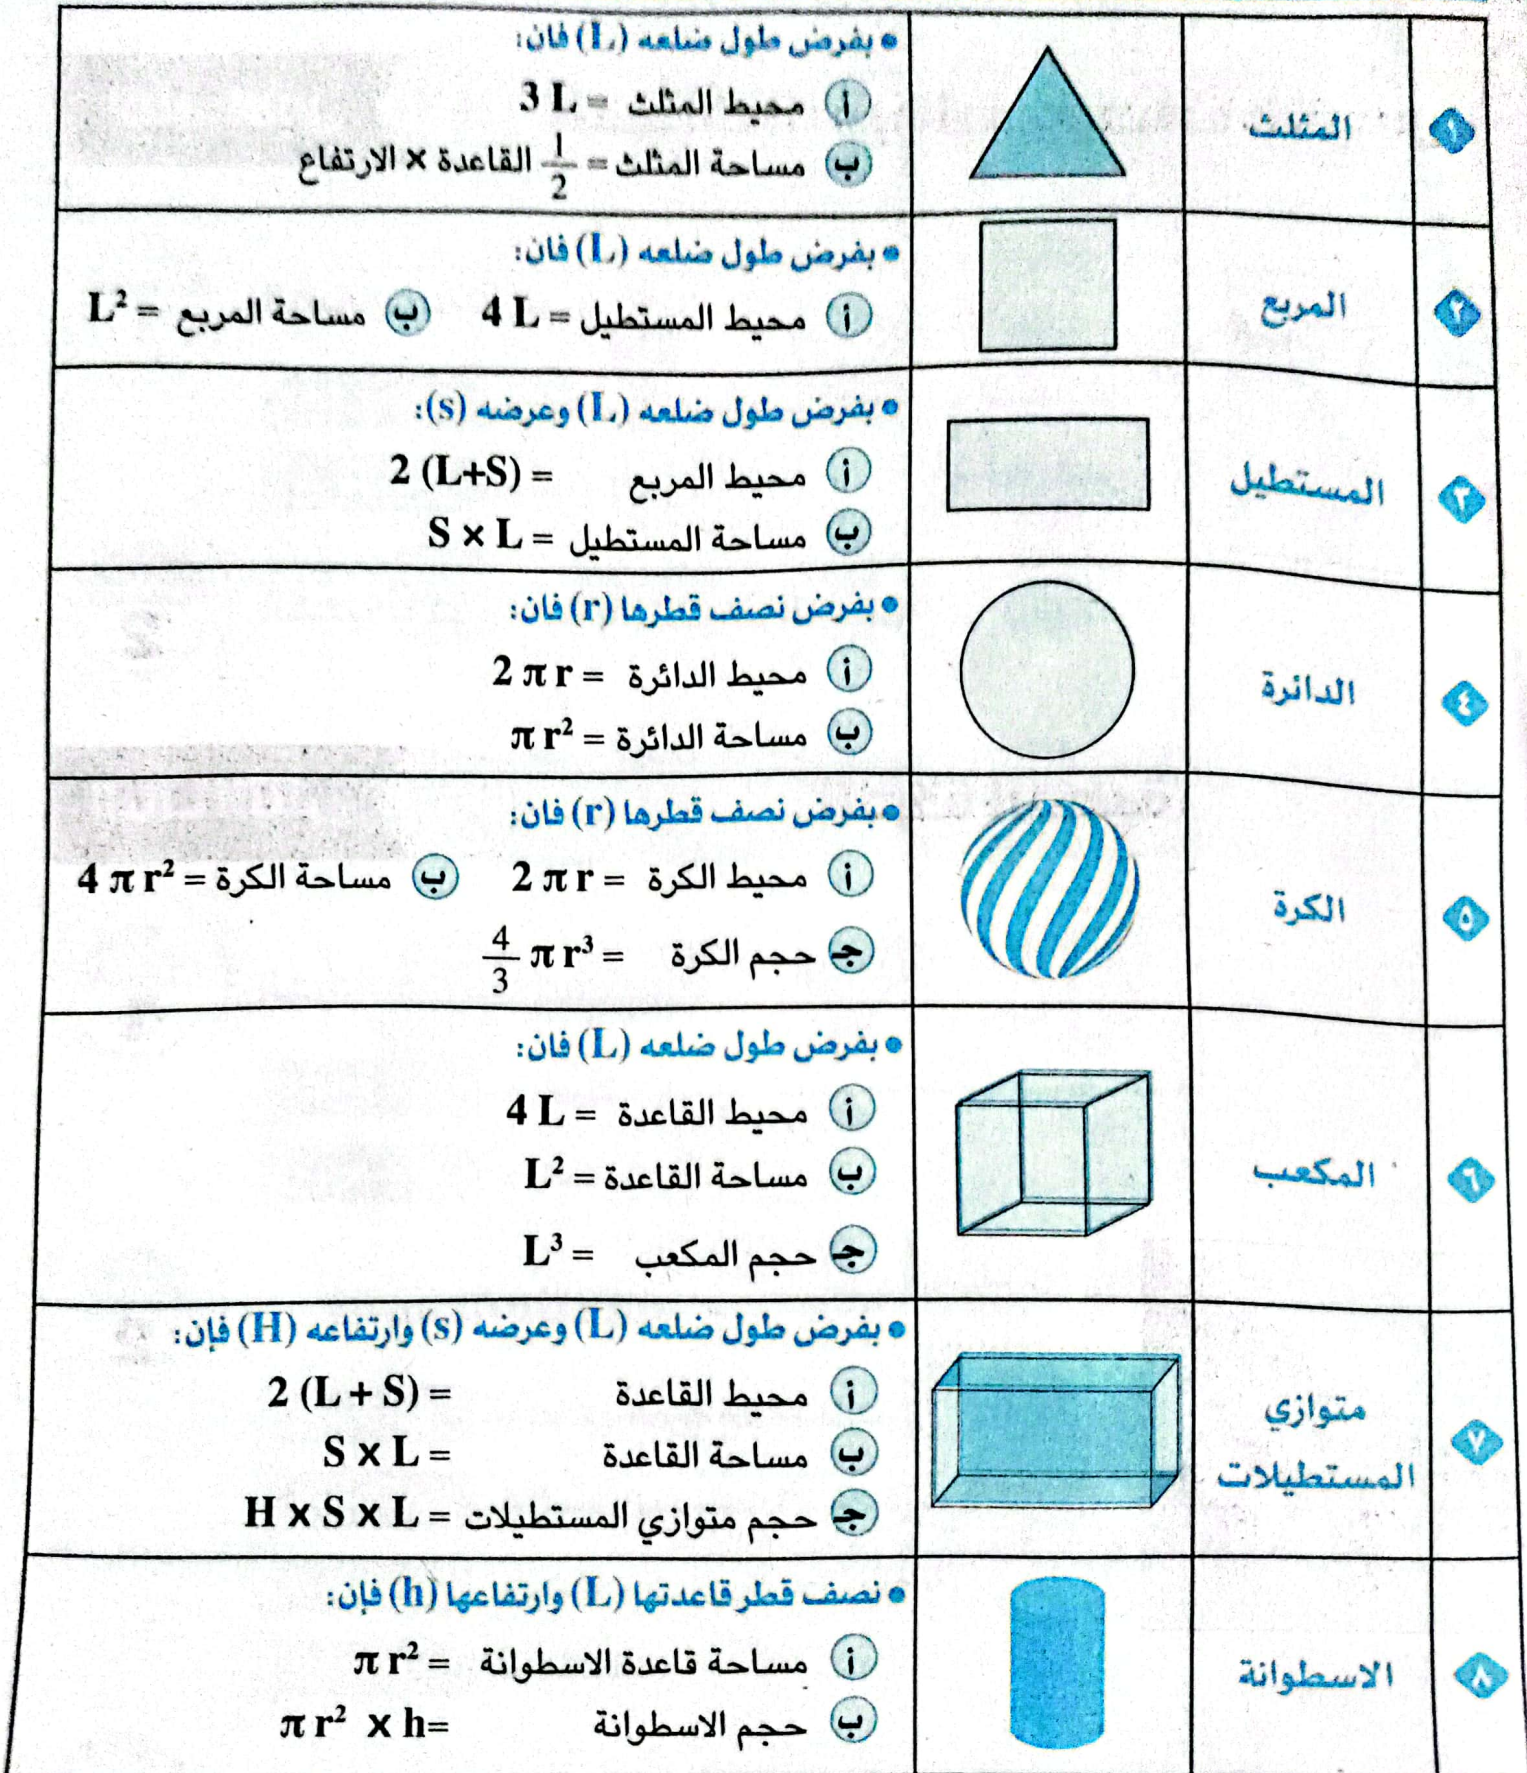 ١
المثلث
• بفرض طول ضلعه (L) فان:
أ محيط المثلث = 3 L
ب مساحة المثلث = 1/2 القاعدة × الارتفاع
٢
المربع
• بفرض طول ضلعه (L) فان:
أ محيط المستطيل = 4 L ب مساحة المربع = L²
٣
المستطيل
• بفرض طول ضلعه (L) وعرضه (s):
أ محيط المربع = 2 (L+S)
ب مساحة المستطيل = S × L
٤
الدائرة
• بفرض نصف قطرها (r) فان:
أ محيط الدائرة = 2 π r
ب مساحة الدائرة = π r²
٥
الكرة
• بفرض نصف قطرها (r) فان:
أ محيط الكرة = 2 π r ب مساحة الكرة = 4 π r²
جـ حجم الكرة = 4/3 π r³
٦
المكعب
• بفرض طول ضلعه (L) فان:
أ محيط القاعدة = 4 L
ب مساحة القاعدة = L²
جـ حجم المكعب = L³
٧
متوازي
المستطيلات
• بفرض طول ضلعه (L) وعرضه (s) وارتفاعه (H) فإن:
أ محيط القاعدة = 2 (L + S)
ب مساحة القاعدة = S × L
جـ حجم متوازي المستطيلات = H × S × L
٨
الاسطوانة
• نصف قطر قاعدتها (L) وارتفاعها (h) فإن:
أ مساحة قاعدة الاسطوانة = π r²
ب حجم الاسطوانة = π r² × h